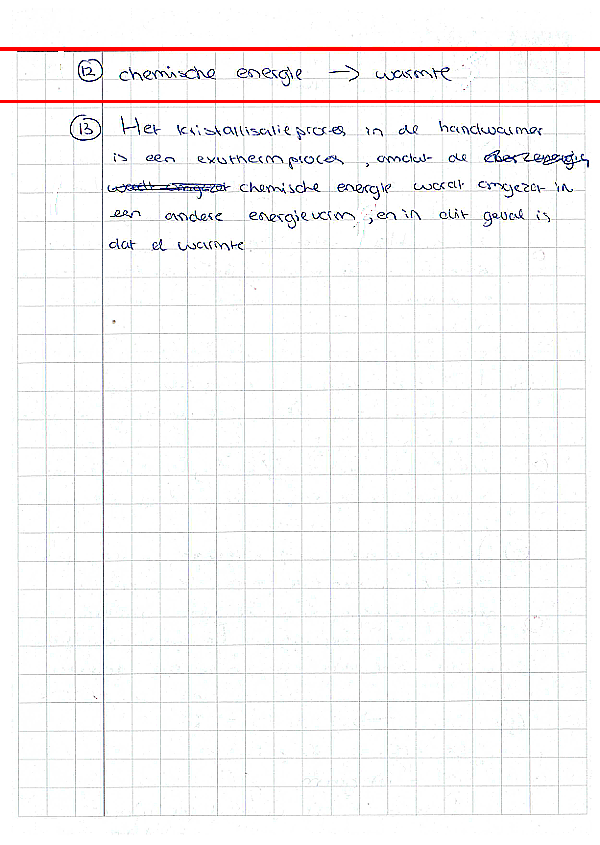 12 chemische energie → warmte
13 Het kristallisatieproces in de handwarmer
is een exotherm proces, omdat de
chemische energie wordt omgezet in
een andere energievorm, en in dit geval is
dat de warmte